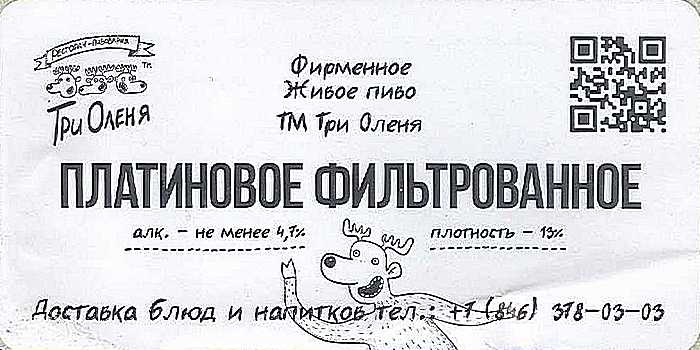 РЕСТОРАН-ПИВОВАРНЯ
ТМ
Три Оленя
Фирменное
Живое пиво
ТМ Три Оленя
ПЛАТИНОВОЕ ФИЛЬТРОВАННОЕ
алк. – не менее 4,7%
плотность – 13%
Доставка блюд и напитков тел.: +7 (846) 378-03-03